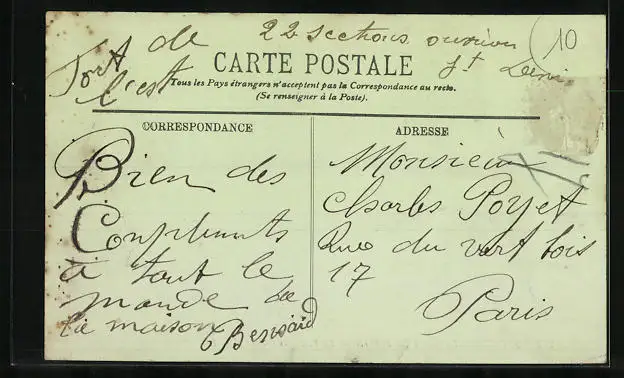 Fort de
l'est
22 sections ouvrier
St Denis
10
CARTE POSTALE
Tous les Pays étrangers n'acceptent pas la Correspondance au recto.
(Se renseigner à la Poste).
CORRESPONDANCE
ADRESSE
Bien des
Compliments
à tout le
monde de
la maison
Monsieur
Charles Poyet
Rue du vert bois
17
Paris